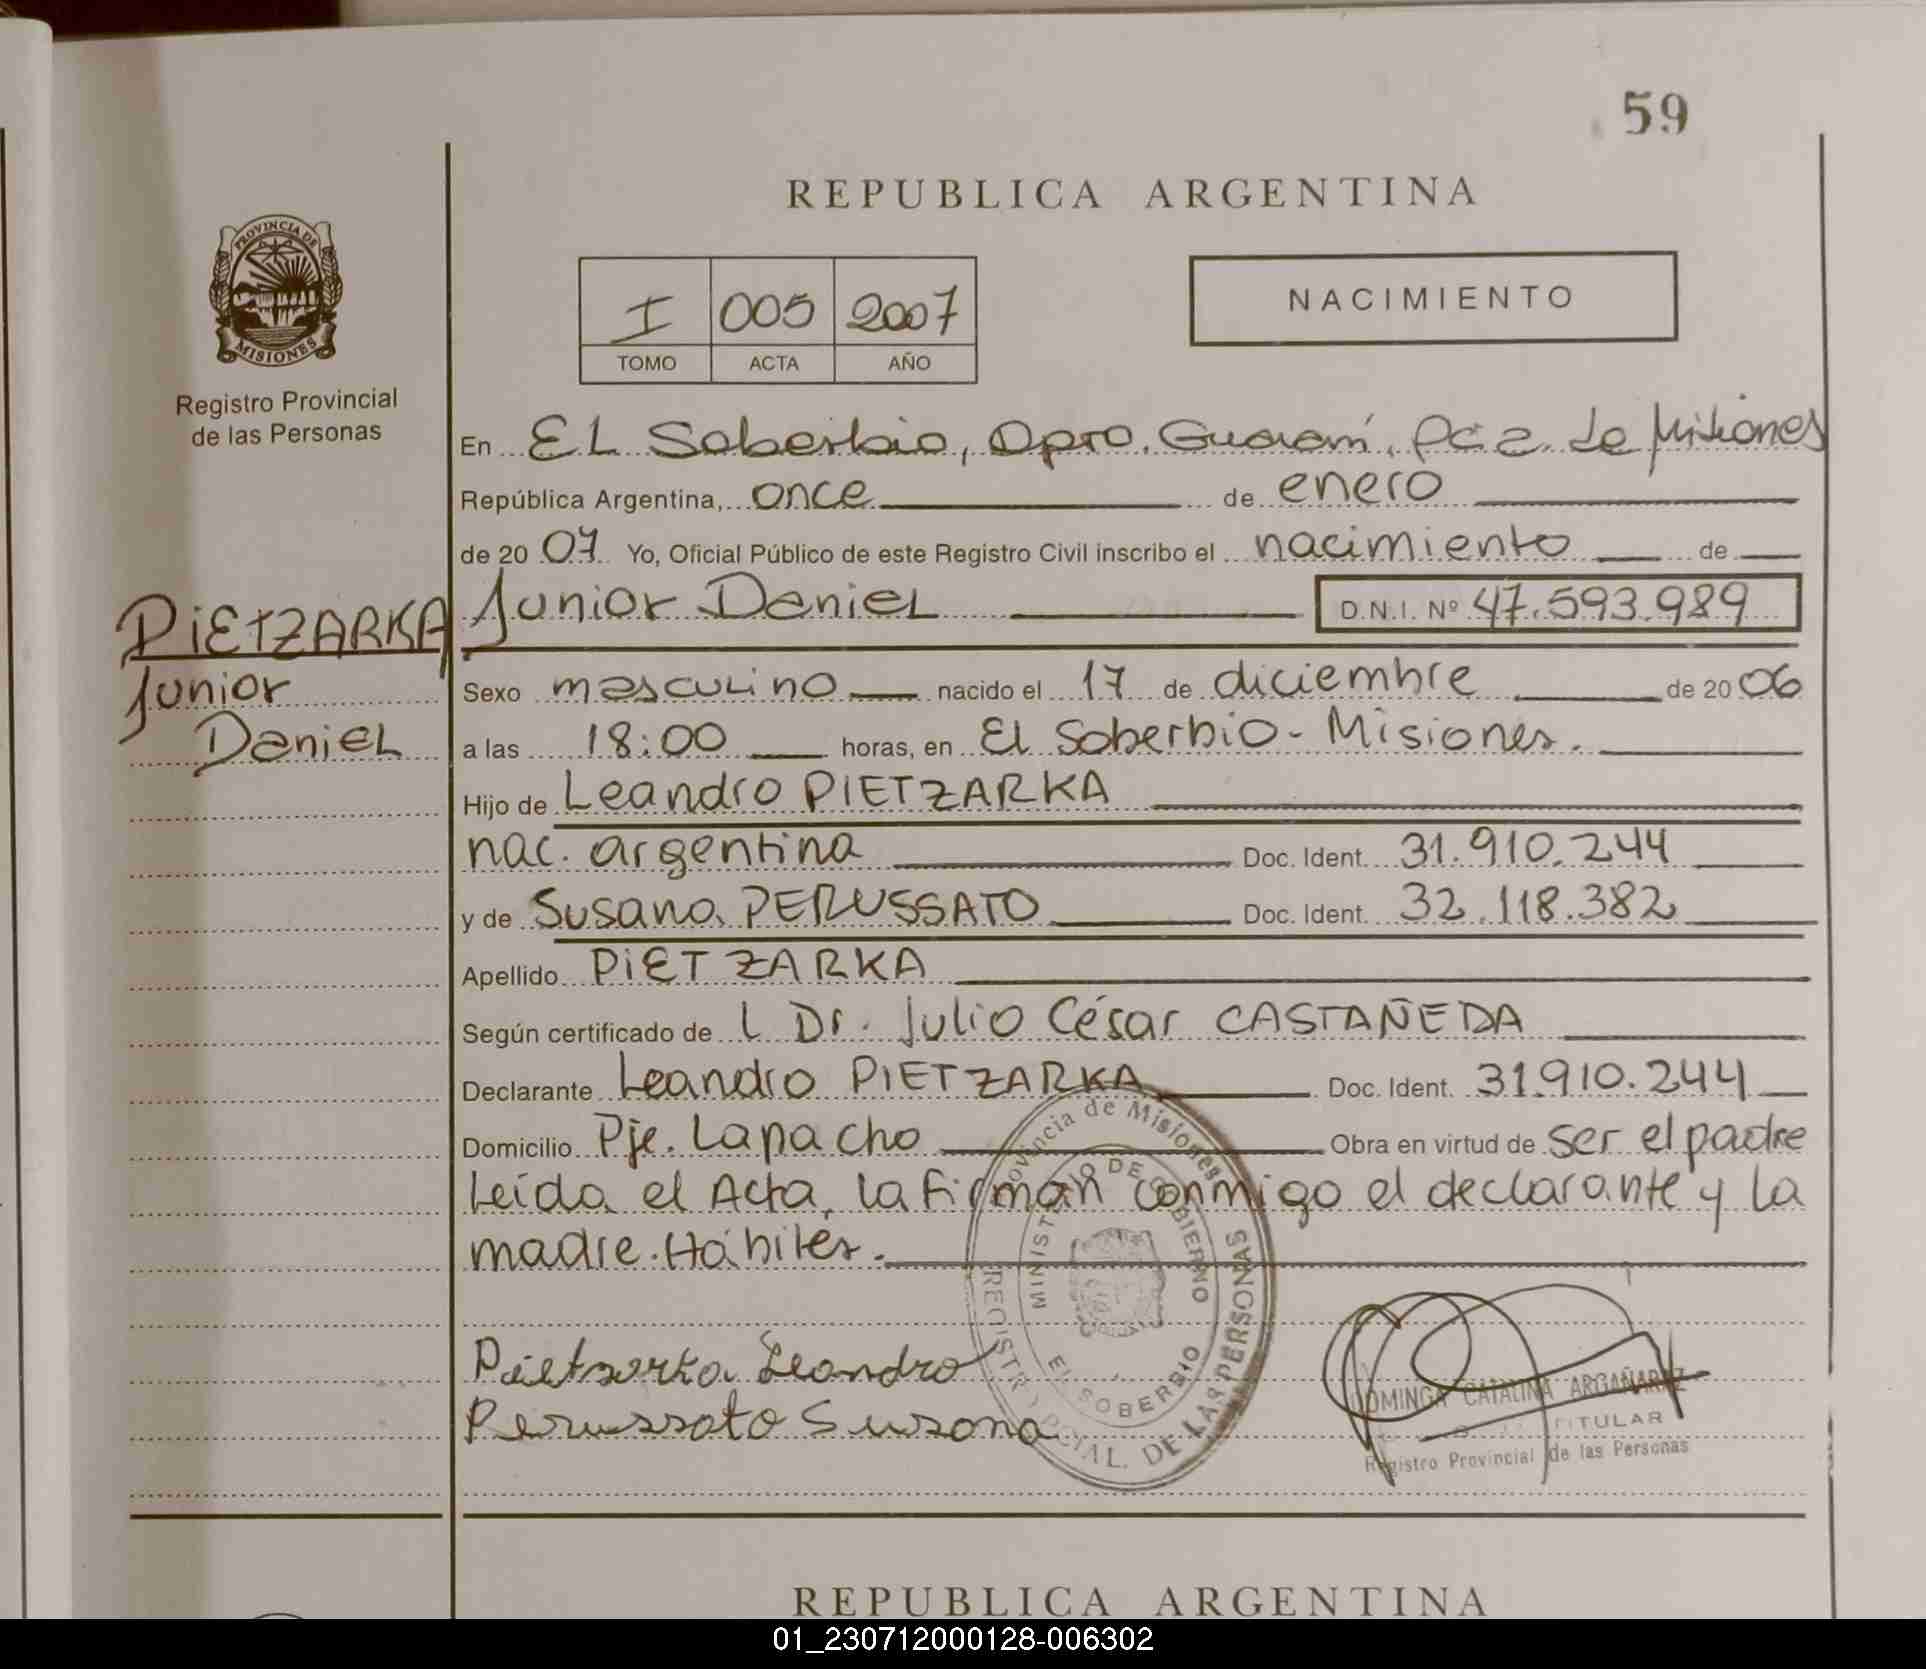 59
REPUBLICA ARGENTINA
PROVINCIA DE
MISIONES
Registro Provincial
de las Personas
I 005 2007
TOMO ACTA AÑO
NACIMIENTO
En EL Soberbio, Dpto. Guaraní, Pcia. de Misiones
República Argentina, once de enero
de 20 07 Yo, Oficial Público de este Registro Civil inscribo el nacimiento de
PIETZARKA
Junior
Daniel
Junior Daniel D.N.I. Nº 47.593.989
Sexo masculino nacido el 17 de diciembre de 20 06
a las 18:00 horas, en El Soberbio - Misiones.
Hijo de Leandro PIETZARKA
nac. argentina Doc. Ident. 31.910.244
y de Susana PERUSSATO Doc. Ident. 32.118.382
Apellido PIETZARKA
Según certificado de l Dr. Julio César CASTAÑEDA
Declarante Leandro PIETZARKA Doc. Ident. 31.910.244
Domicilio Pje. Lapacho Obra en virtud de ser el padre
Leída el Acta, la firman conmigo el declarante y la
madre. Hábiles.
Pietzarka Leandro
Perussato Susana
Provincia de Misiones
MINISTERIO DE GOBIERNO
EL SOBERBIO
REGISTRO PCIAL. DE LAS PERSONAS
DOMINGA CATALINA ARGAÑARAZ
TITULAR
Registro Provincial de las Personas
REPUBLICA ARGENTINA
01_230712000128-006302